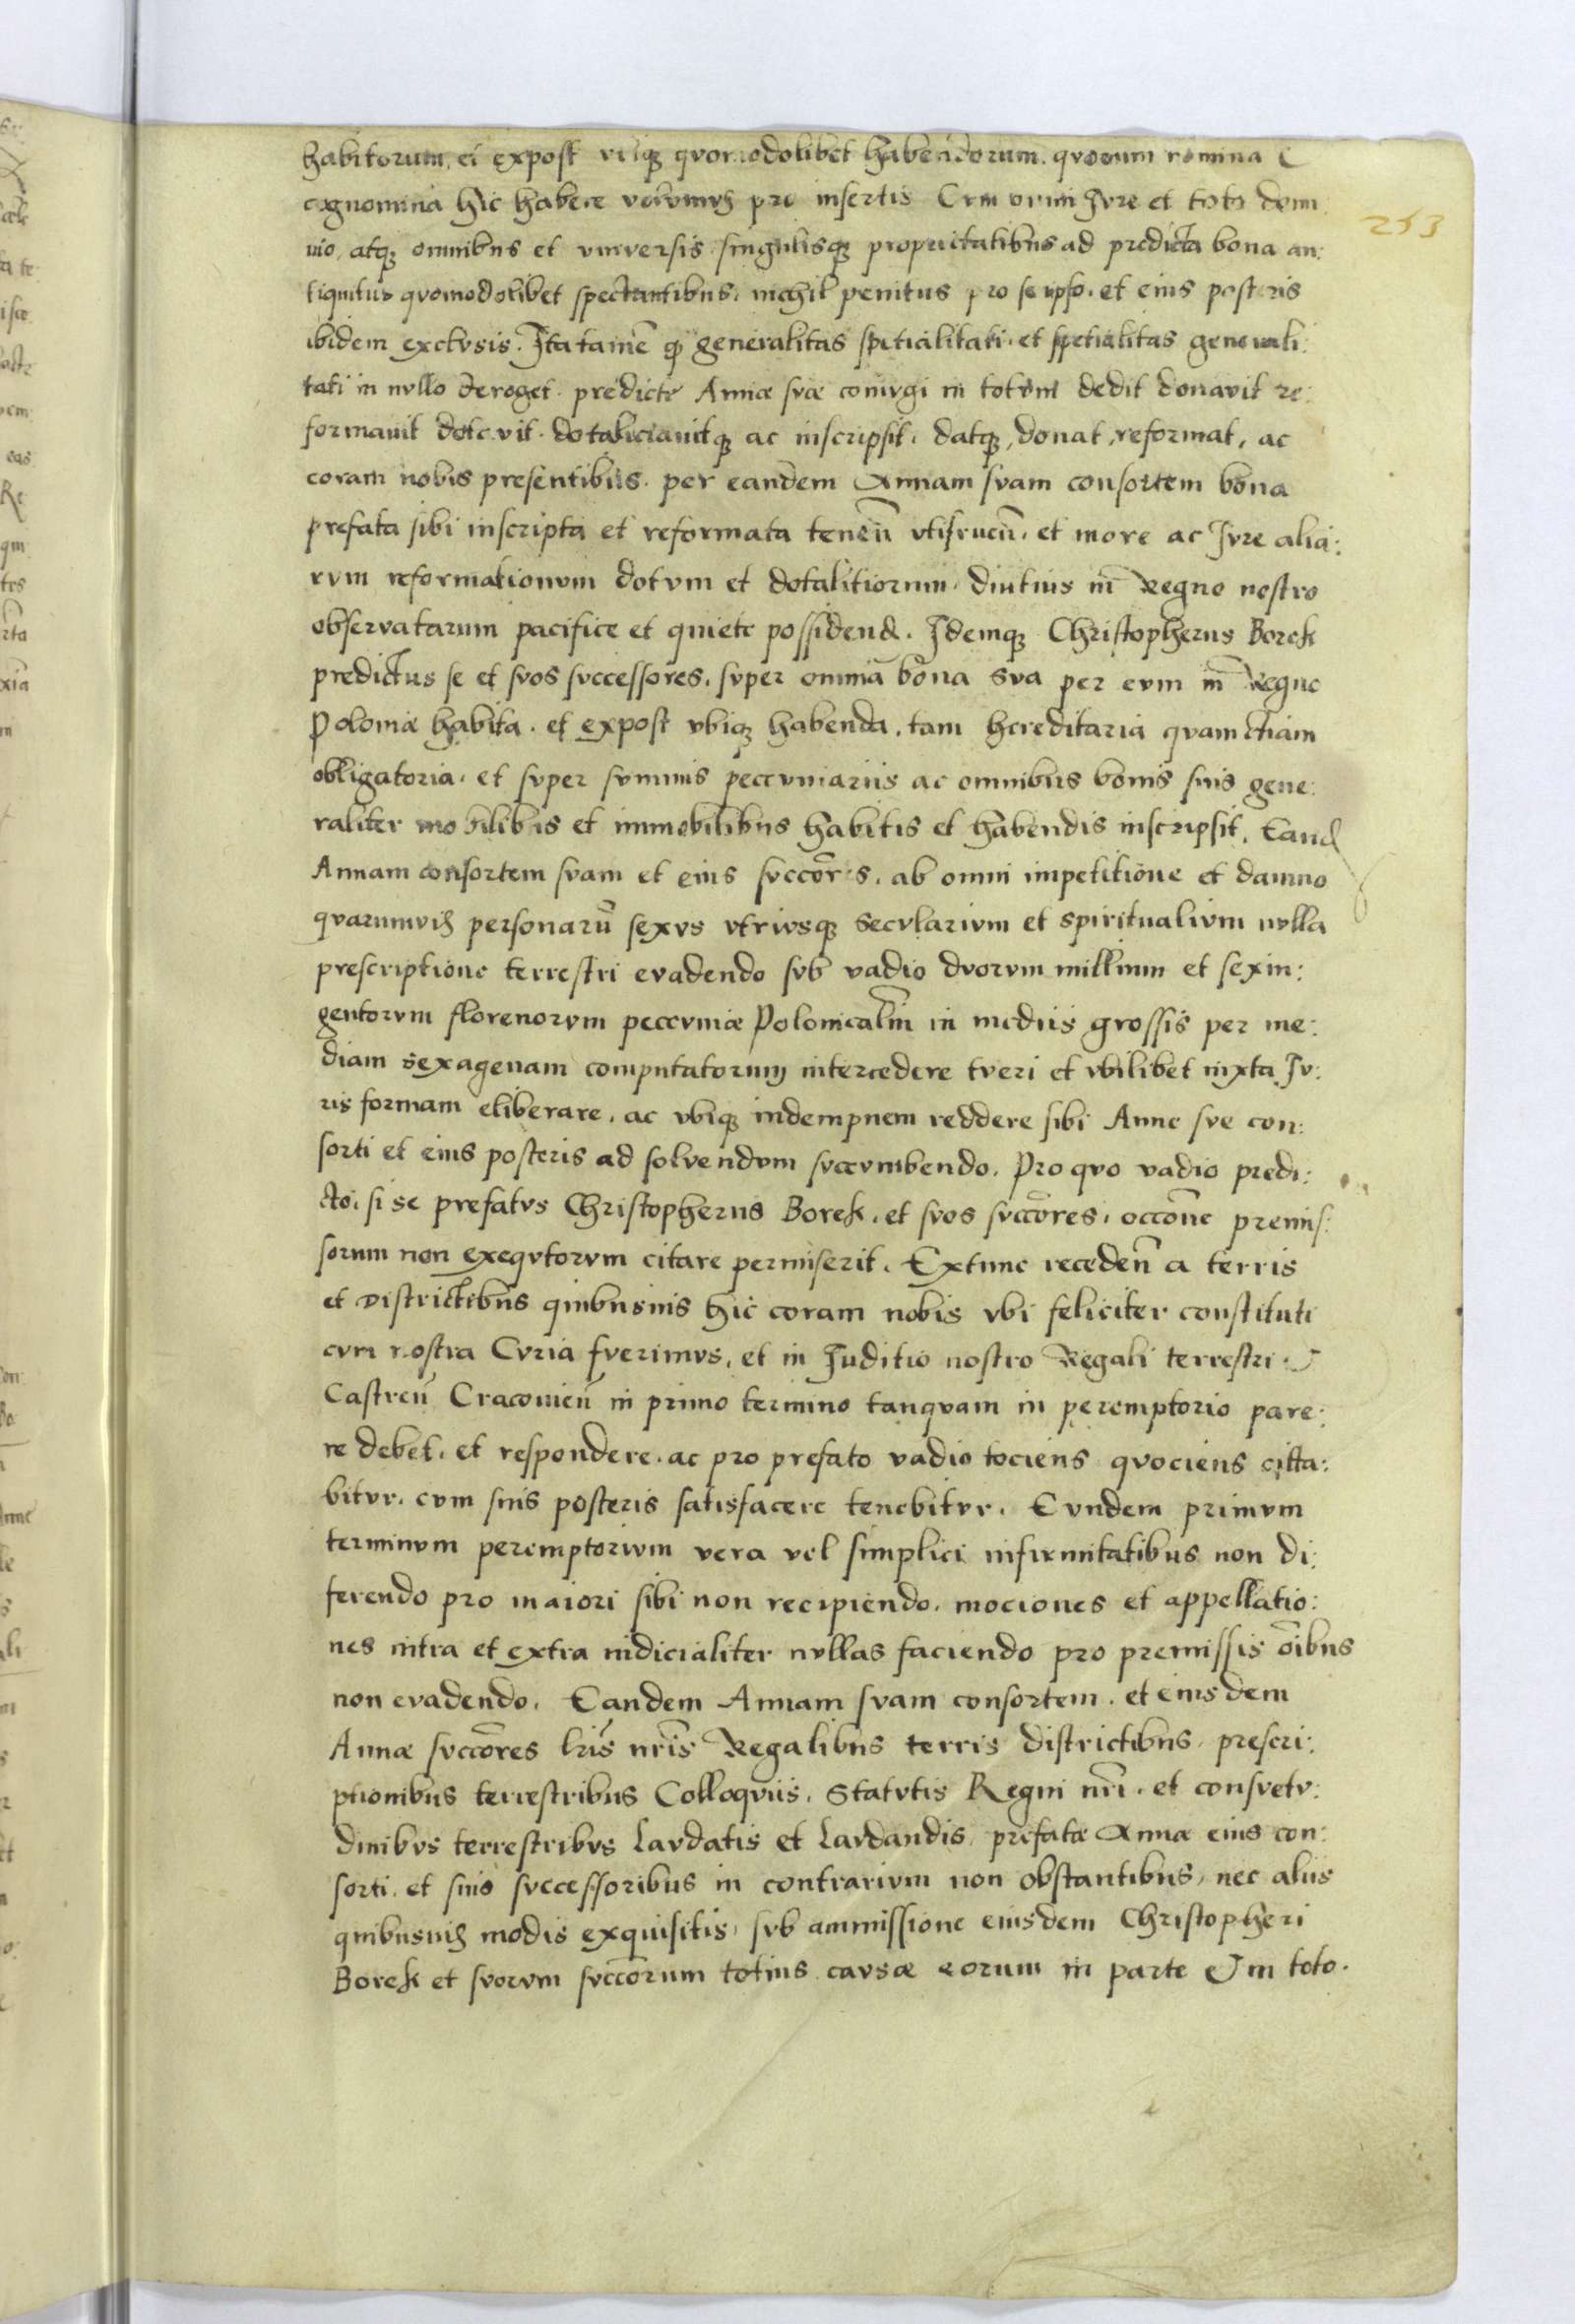 habitorum, et expost vbiqʒ qvomodolibet habendorum. qvorum nomina &
cognomina hic habere volumus pro insertis Cvm omni Jvre et toto domi
nio, atqʒ omnibus et vniversis singulisqʒ proprietatibus ad predicta bona an:
tiquitus qvomodolibet spectantibus. nichil penitus pro se ipso. et eius posteris
ibidem exclvsis. Ita tamē qʒ generalitas spetialitati. et spetialitas generali:
tati in nvllo deroget. predictę Annæ svæ conivgi in totvm dedit donavit re:
formavit dotavit. dotaliciavitqʒ ac inscripsit. datqʒ, donat, reformat, ac
coram nobis presentibus. per eandem Annam svam consortem bona
prefata sibi inscripta et reformata tenēn̄ vtifruen̄. et more ac Jvre alia:
rvm reformationvm dotvm et dotalitiorum diutius in Regno nostro
observatarum pacifice et quiete possidend. Idemqʒ Christopherus Borek
predictus se et svos svccessores. svper omnia bona sva per evm in Regno
Poloniæ habita. et expost vbiqʒ habenda. tam hereditaria qvam etiam
obligatoria. et svper svmmis peccvniariis ac omnibus bonis suis gene:
raliter mobilibus et immobilibus habitis et habendis inscripsit. Eand
Annam consortem svam et eius svccōres. ab omni impetitione et damno
qvarumvis personarū sexvs vtrivsqʒ secvlarivm et spiritualivm nvlla
prescriptione terrestri evadendo svb vadio dvorvm millium et sexin:
gentorvm florenorvm peccvniæ Polonicalīm in mediis grossis per me:
diam sexagenam computatorum intercedere tveri et vbilibet iuxta Jv:
ris formam eliberare. ac vbiqʒ indempnem reddere sibi Anne sve con:
sorti et eius posteris ad solvendvm svccvmbendo. Pro qvo vadio predi:
cto. si se prefatvs Christopherus Borek. et svos svccōres. occōne premis:
sorum non exeqvtorvm citare permiserit. Extunc recedeñ a terris
et districtibus quibusuis hic coram nobis vbi feliciter constituti
cvm nostra Cvria fverimvs. et in Juditio nostro Regali terrestri &
Castreñ Cracovieñ in primo termino tanqvam in peremptorio pare:
re debet. et respondere. ac pro prefato vadio tociens qvociens citta:
bitvr. cvm suis posteris satisfacere tenebitvr. Evndem primvm
terminvm peremptorivm vera vel simplici infirmitatibus non di:
ferendo pro maiori sibi non recipiendo. mociones et appellatio:
nes intra et extra iudicialiter nvllas faciendo pro premissis ōibus
non evadendo. Eandem Annam svam consortem. et eiusdem
Annæ svccōres lrīs nrīs Regalibus terris districtibus. prescri:
ptionibus terrestribus Colloqviis. Statvtis Regni nrī. et consvetv:
dinibvs terrestribvs lavdatis et lavdandis. prefatæ Annæ eius con:
sorti. et suis svccessoribus in contrarivm non obstantibus, nec aliis
quibusuis modis exquisitis, svb ammissione eiusdem Christopheri
Borek et svorvm svccōrum totius cavsæ eorum in parte & in toto.
253